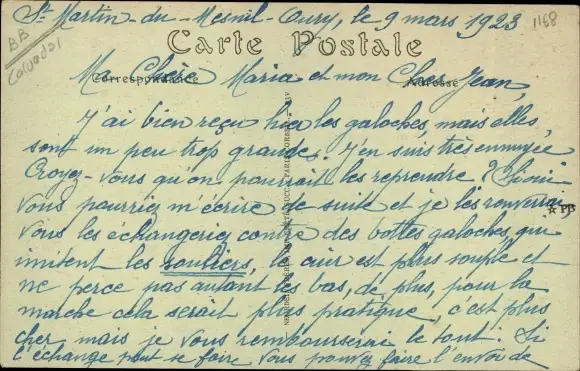 St Martin-du-Mesnil-Oury, le 9 mars 1923
1168
BB
Calvados
Carte Postale
Correspondance
Adresse
Ma Chère Maria et mon Cher Jean,
J'ai bien reçu hier les galoches, mais elles
sont un peu trop grandes. J'en suis très ennuyée
Croyez-vous qu'on pourrait les reprendre? Si oui
vous pourriez m'écrire de suite et je les renverrai
Vous les échangeriez contre des bottes galoches, qui
imitent les souliers, le cuir est plus souple et
ne perce pas autant les bas, de plus, pour la
marche cela serait plus pratique, c'est plus
cher mais je vous rembourserai le tout. Si
l'échange peut se faire vous pouvez faire l'envoi de